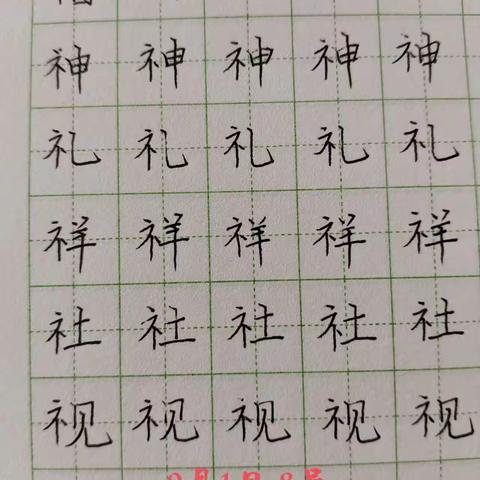 神 神 神 神 神
礼 礼 礼 礼 礼
祥 祥 祥 祥 祥
社 社 社 社 社
视 视 视 视 视